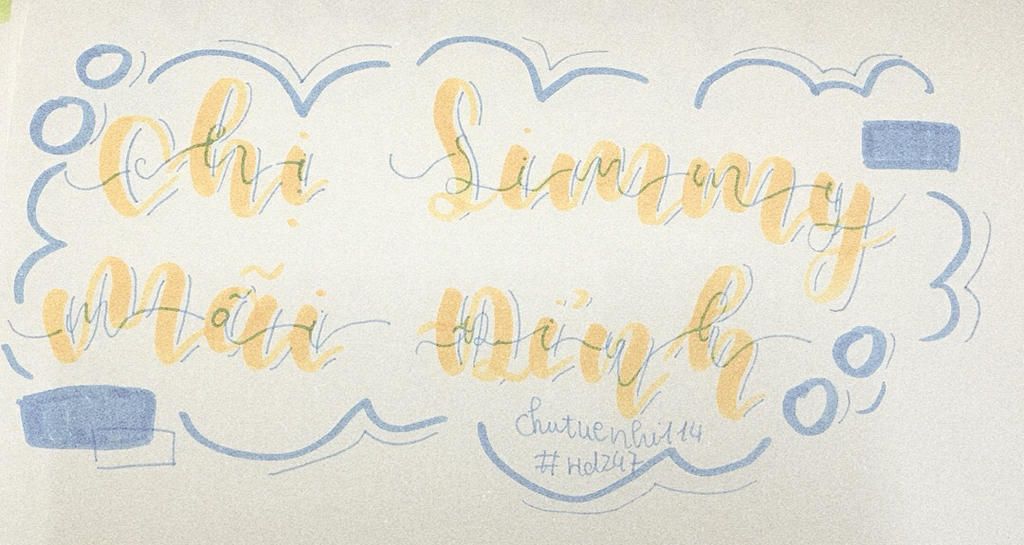 Chị Simmy
mãi Đỉnh
chutuenhi114
#Hd247